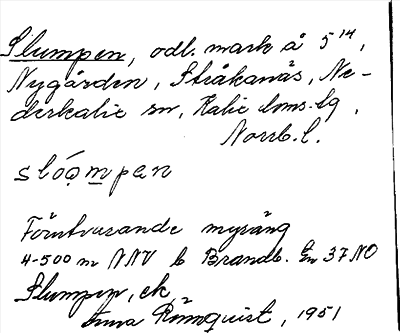 Slumpen, odl. mark å 5¹⁴,
Nygården, Stråkanäs, Ne-
derkalix sn, Kalix lms. tg.
Norrb. l.
slóo̧m̲pen
Försvarande myräng
4-500 m NNV b Brandb. 37 NO
Slumpen, ek
Anna Rönnquist, 1951